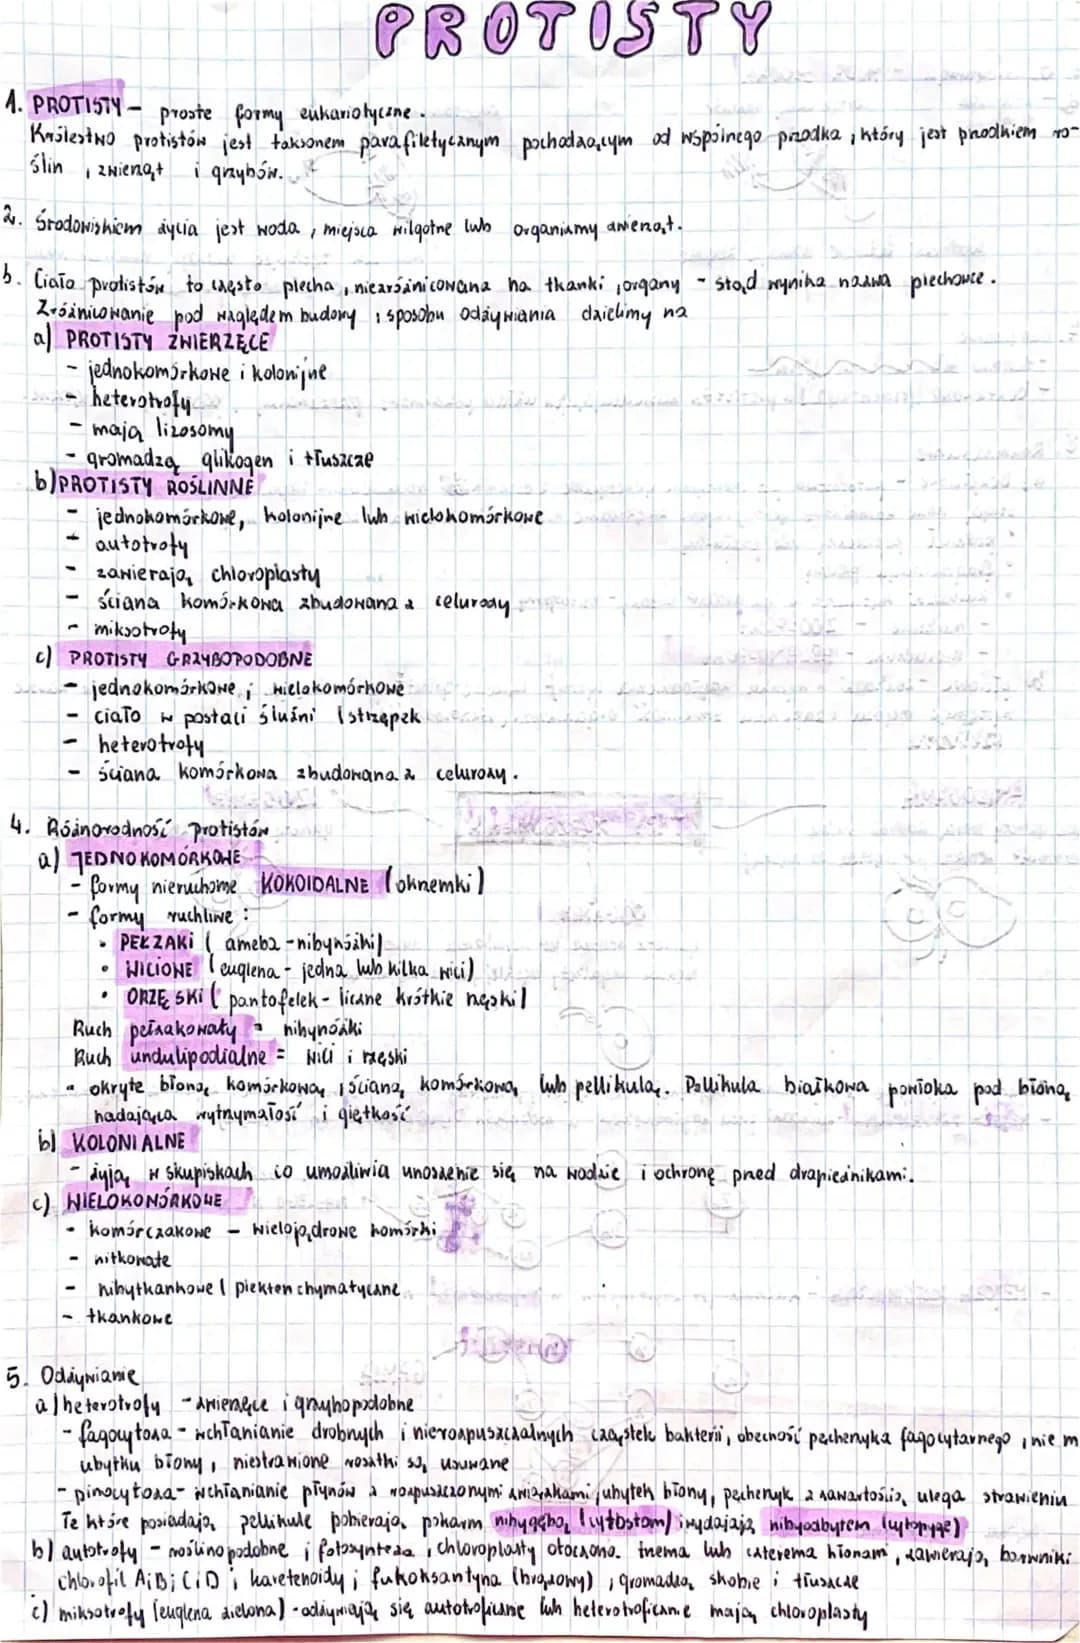 PROTISTY
1. PROTISTY - proste formy eukariotyczne.
Królestwo protistów jest taksonem parafiletycznym pochodzącym od wspólnego przodka, który jest przodkiem ro-
ślin, zwierząt i grzybów.
2. Środowiskiem życia jest woda, miejsca wilgotne lub organizmy zwierząt.
3. Ciało protistów to często plecha, niezróżnicowana na tkanki, organy - stąd wynika nazwa plechowce.
Zróżnicowanie pod względem budowy i sposobu odżywiania dzielimy na
a) PROTISTY ZWIERZĘCE
- jednokomórkowe i kolonijne
- heterotrofy
- mają lizosomy
- gromadzą glikogen i tłuszcze
b) PROTISTY ROŚLINNE
- jednokomórkowe, kolonijne lub wielokomórkowe
- autotrofy
- zawierają chloroplasty
- ściana komórkowa zbudowana z celurozy
- miksotrofy
c) PROTISTY GRZYBOPODOBNE
- jednokomórkowe i wielokomórkowe
- ciało w postaci śluźni (strzępek
- heterotrofy
- ściana komórkowa zbudowana z celurozy.
4. Różnorodność protistów
a) JEDNOKOMÓRKOWE
- formy nieruchome KOKOIDALNE (oknemki)
- formy ruchliwe:
• PEŁZAKI (ameba - nibynóżki)
• WICIOWE (euglena - jedna lub kilka wici)
• ORZĘSKI (pantofelek - liczne krótkie rzęski)
Ruch pełzakowaty = nibynóżki
Ruch undulipodialne = wici i rzęski
- okryte błoną komórkową, ścianą komórkową lub pellikulą. Pellikula białkowa powłoka pod błoną
nadająca wytrzymałość i giętkość
b) KOLONIALNE
- żyją w skupiskach co umożliwia unoszenie się na wodzie i ochronę przed drapieżnikami.
c) WIELOKOMÓRKOWE
- komórczakowe - wielojądrowe komórki
- nitkowate
- nibytkankowe (plektenchymatyczne
- tkankowe
5. Odżywianie
a) heterotrofy - zwierzęce i grzybopodobne
- fagocytoza - wchłanianie drobnych i nierozpuszczalnych cząstek bakterii, obecność pęcherzyka fagocytarnego, nie m
ubytku błony, niestrawione resztki są usuwane
- pinocytoza - wchłanianie płynów z rozpuszczonymi związkami, ubytek błony, pęcherzyk z zawartością ulega strawieniu
Te które posiadają pellikule pobierają pokarm nibygębą (cytostom) i wydają nibyodbytem (cytopyge)
b) autotrofy - roślinopodobne i fotosynteza, chloroplasty otoczono trzema lub czterema błonami, zawierają barwniki
chlorofil A i B i C i D i karetenoidy i fukoksantyna (brązowy), gromadzą skobie i tłuszcze
c) miksotrofy (euglena zielona) - odżywiają się autotroficznie lub heterotroficznie mają chloroplasty